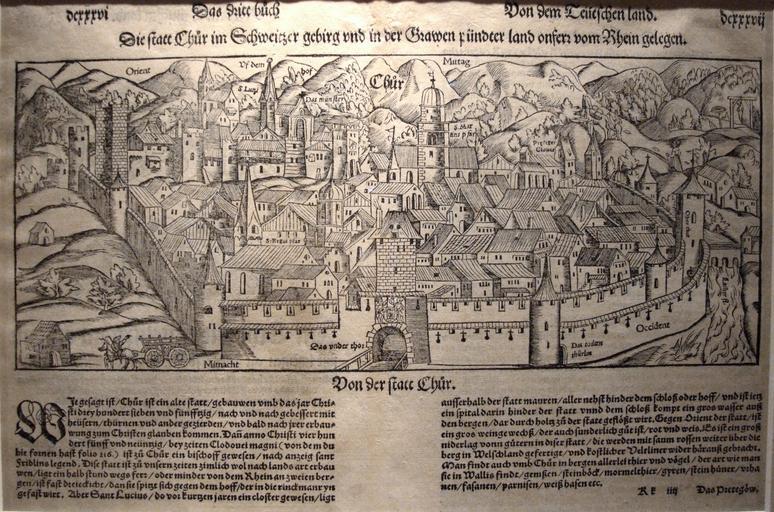 dcxxxvi Das dritt büch Von dem Teütschen land. dcxxxvij
Die statt Chůr im Schweitzer gebirg vnd in der Grawen pündter land onferr vom Rhein gelegen.
Orient
Vf dem hof
Mittag
Chůr
S. Luci
Das münster
Occident
Das vnder thor
Mitnacht
Von der statt Chůr.
WJe gesagt ist / Chůr ist ein alte statt / gebauwen vmb das jar Chri-
sti drey hundert sieben vnd fünfftzig / nach vnd nach gebessert mit
heüsern / thürnen vnd ander gezierden / vnd bald nach jrer erbau-
wung zum Christen glauben kommen. Dañ anno Christi vier hun
dert fünff vnd neüntzig / bey zeiten Clodouei magni ( von dem du
hie fornen hast folio 116. ) ist zů Chůr ein bischoff gewesen / nach anzeig sant
Fridlins legend. Dise statt ist zů vnsern zeiten zimlich wol nach lands art erbau
wen / ligt ein halb stund wegs ferr / oder minder von dem Rhein an zweien ber-
gen / ist fast dreieckicht / dañ sie spitzt sich gegen dem hoff / der in die rinckmauren yn
gefaßt wirt. Aber Sant Lucius / do vor kurtzen jaren ein closter gewesen / ligt
ausserhalb der statt mauren / aller nehst hinder dem schloß oder hoff / vnd ist jetz
ein spital darin hinder der statt vnnd dem schloß kompt ein groß wasser auß
den bergen / dar durch holtz zů der statt geflötzt wirt. Gegen Orient der statt / ist
ein groß weingewechß / der auch sunderlich gůt ist / rot vnd weiß. Es ist ein groß
niderlag von gütern in diser statt / die werden mit saum rossen weiter über die
berg in Welschland gefertigt / vnd kostlicher Velteliner wider harauß gebracht.
Man findt auch vmb Chůr in bergen allerlei thier vnd vögel / der art wie man
sie in Wallis findt / gemsen / steinböck / murmelthier / gyren / stein hüner / vrha
nen / fasanen / parnisen / weiß hasen etc.
K k iiij Das Pretegöw.